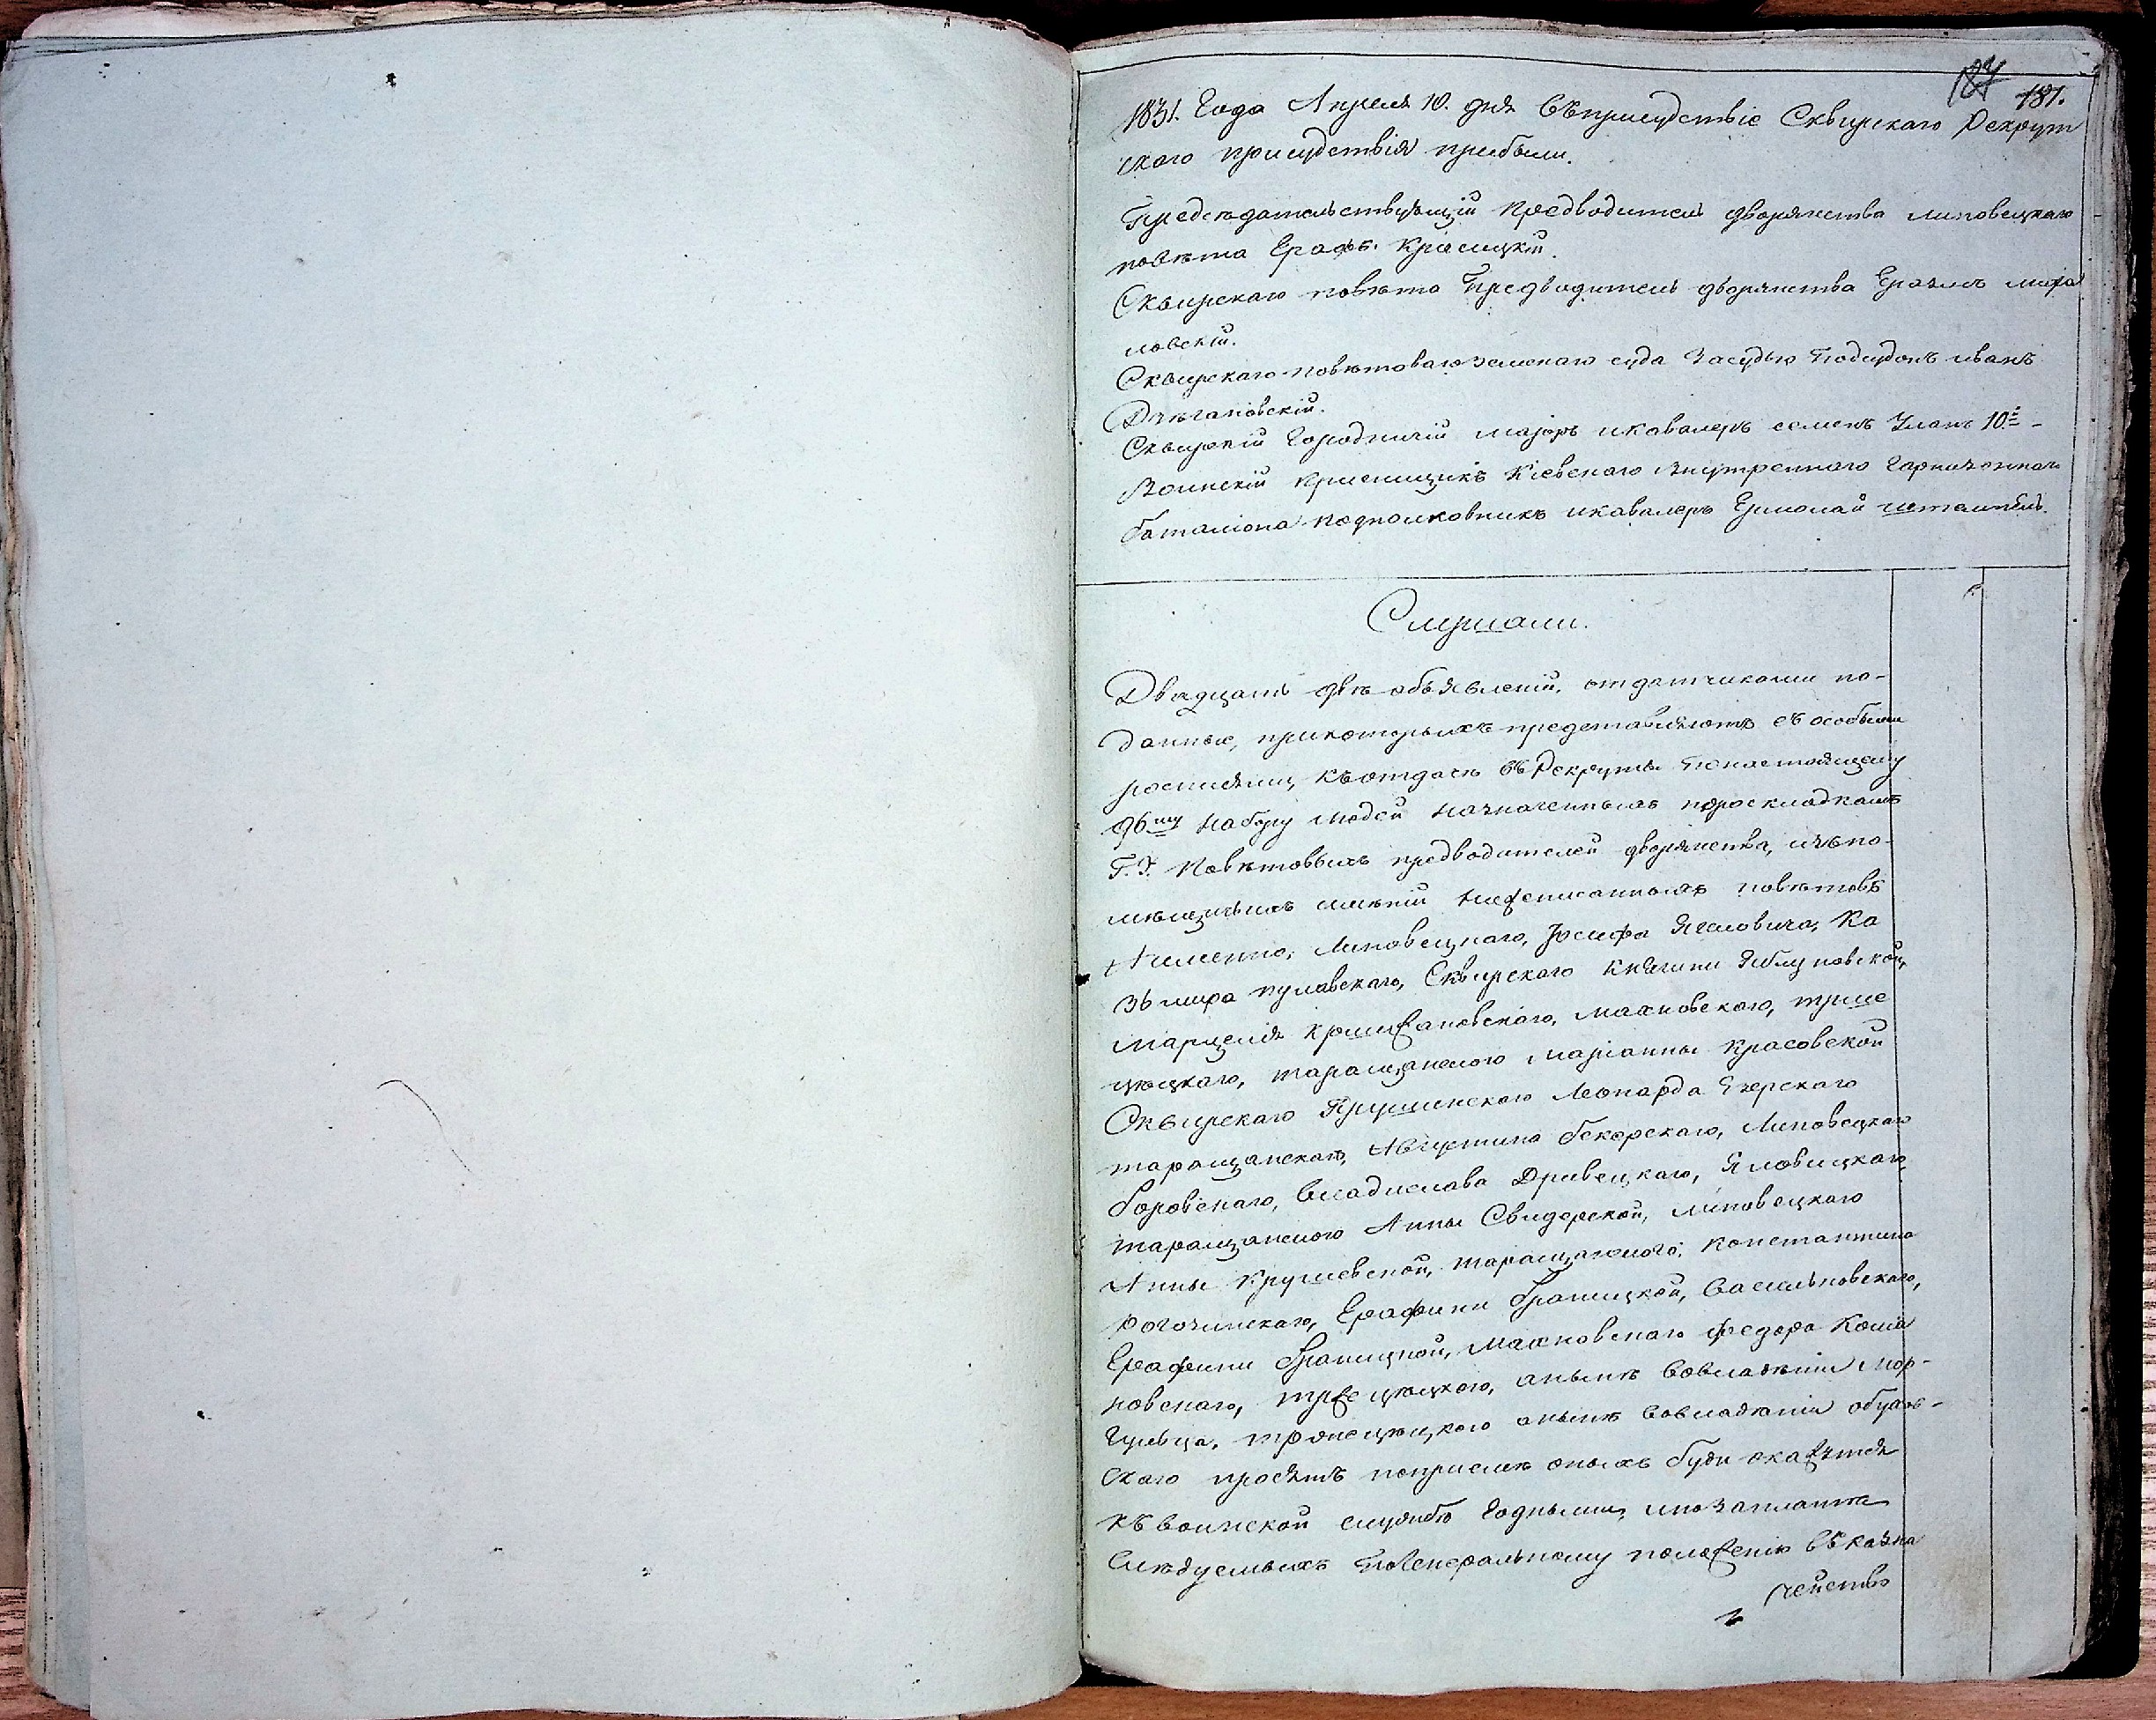 181.
1831. Года Апреля 10. дня въприсудствіе Сквирскаго Рекрут
скаго присудствія прибыли.
Предсѣдательствующій Предводитель дворянства липовецкаго
повѣта Графъ Красицкій.
Сквирскаго повѣта Предводитель дворянства
ловскій.
Сквирскаго повѣтоваго земскаго суда Засудью Подсудокъ иванъ
Сквирскій Городничій маіоръ икавалеръ семенъ Уланъ 10й
Воинскій приемщикъ Кіевскаго внутренняго Гарнизоннаго
баталіона подполковникъ икавалеръ Ермолай
Слушали.
Двадцать двѣ объявленій, отдатчиками по-
данные, прикоторыхъ представляютъ съ особыми
росписями, къотдачѣ въ Рекруты Понастоящему
96му набору людей назначенныхъ пораскладкамъ
Г.Г. Повѣтовыхъ предводителей дворянства, изъпо-
мѣщичьихъ имѣній нижеписанныхъ повѣтовъ
Аименно, Липовецкаго, Іосифа Ка
зьмира пулавскаго, Сквирскаго Княгини Яблуновской,
Марцелія махновскаго,
таращанского Маріанны Красовской
Сквирскаго Прушинского Леонарда Езерскаго
таращанскаго, Августина бекерскаго, Липовецкаго
боровскаго, Владислава Древецкаго, Яловицкаго,
таращанского Анны Свидерской, липовецкаго
Анны Крушевской, таращанского, Константина
рогозинскаго, Графини браницкой, Васильковскаго,
Графини браницкой, Махновскаго федора
новскаго, анынѣ вовладѣніи Мор-
гульца, анынѣ вовладѣніи обухов-
скаго просятъ поприемѣ оныхъ буди окажутся
къ воинской службѣ Годными, ипозаплатѣ
Слѣдуемыхъ ПоГенеральному положенію въ казна
чейство